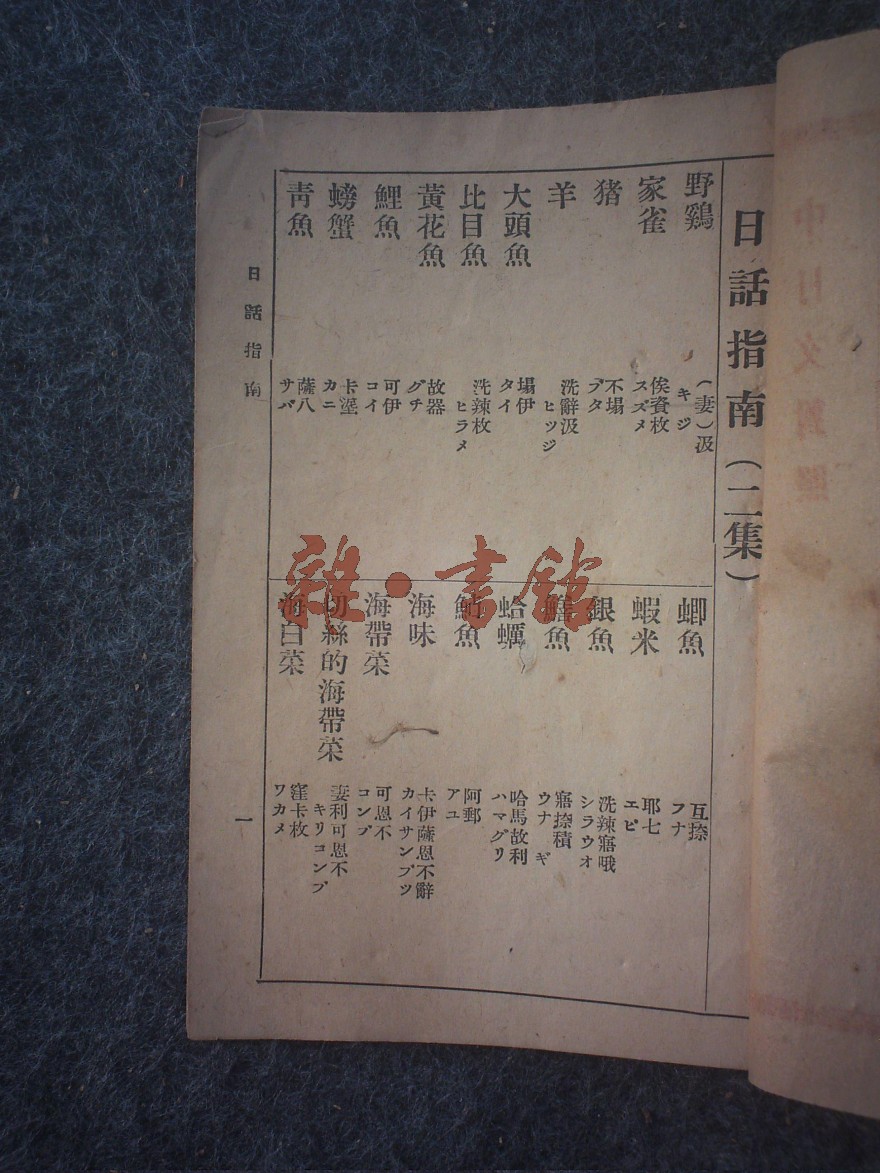 日話指南(二集)
野鷄
(妻)汲
キジ
家雀
俟資枚
スズメ
猪
不塌
ブタ
羊
洗辭汲
ヒツジ
大頭魚
塌伊
タイ
比目魚
洗辣枚
ヒラメ
黃花魚
故器
グチ
鯉魚
可伊
コイ
螃蟹
卡
カニ
靑魚
薩八
サバ
鯽魚
互捺
フナ
蝦米
耶七
エビ
銀魚
洗辣寤哦
シラウオ
魚
寤捺積
ウナギ
蛤蠣
哈馬故利
ハマグリ
魚
阿郵
アユ
海味
卡伊薩恩不辭
カイサンブツ
海帶菜
可恩不
コンブ
切絲的海帶菜
妻利可恩不
キリコンブ
海白菜
窪卡枚
ワカメ
日話指南
一
雜·書館